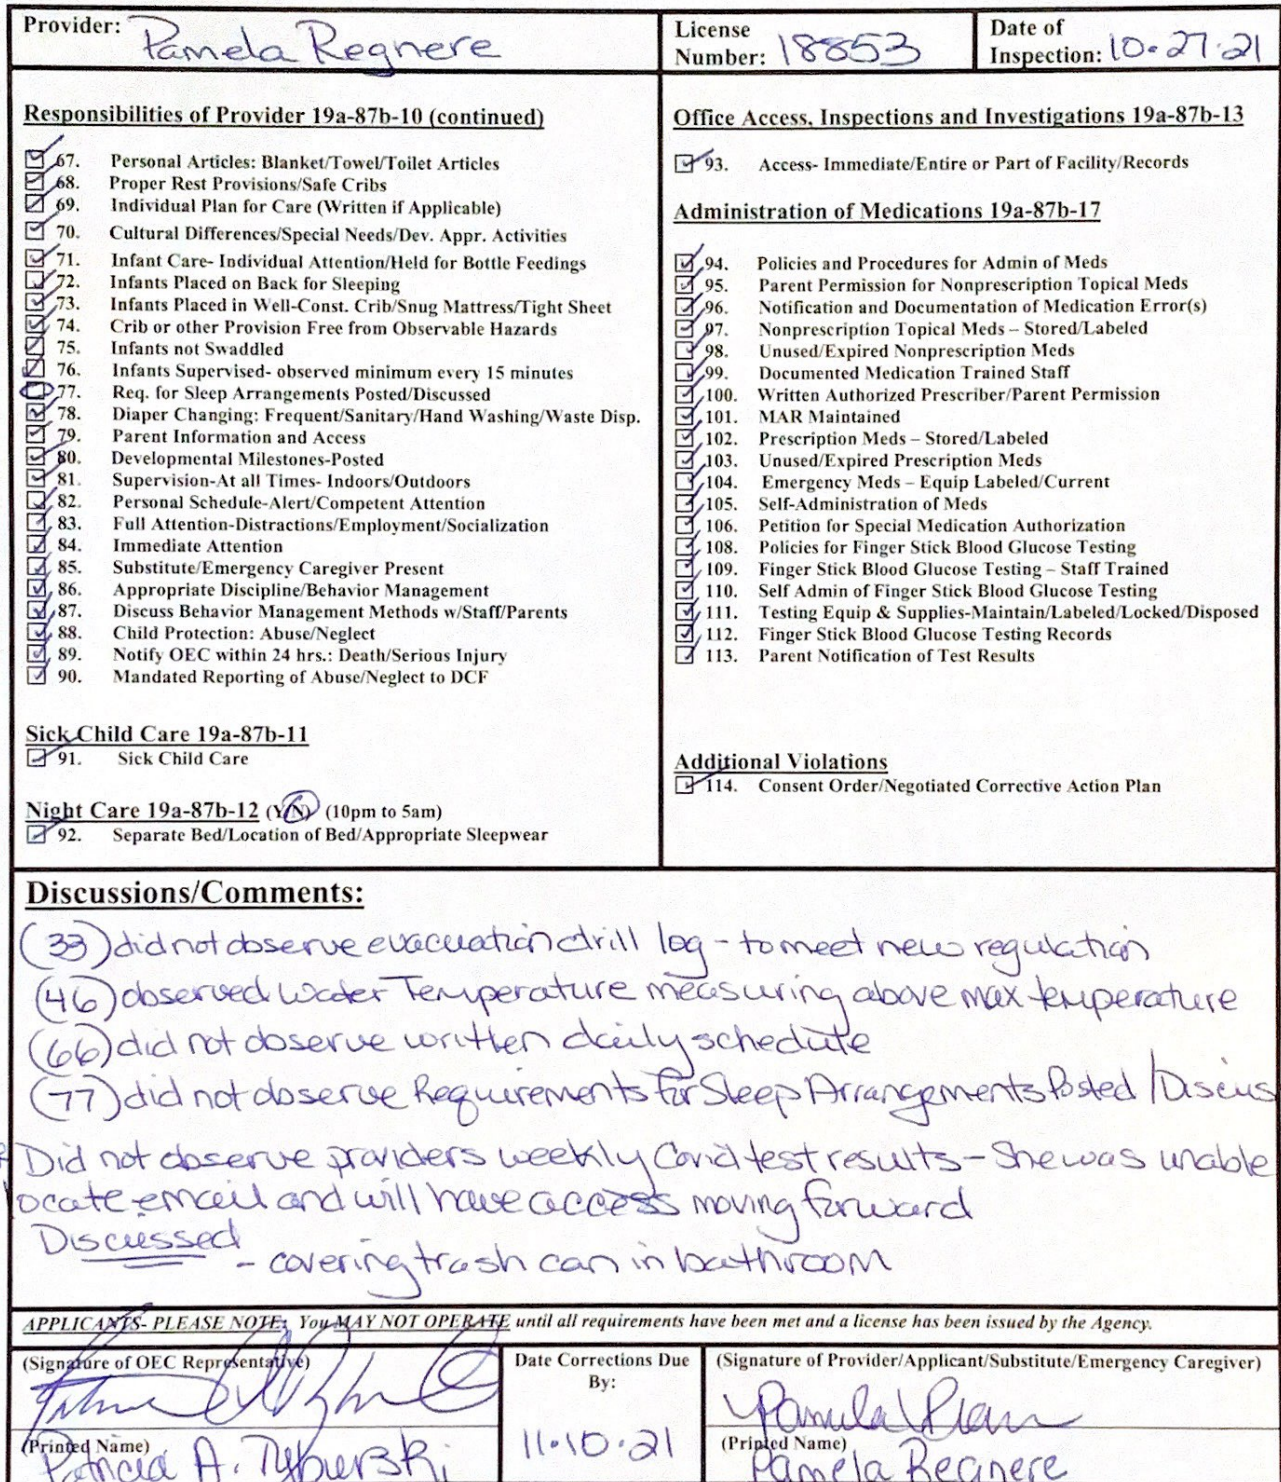 Provider: Pamela Regnere
License Number: 18853
Date of Inspection: 10-27-21
Responsibilities of Provider 19a-87b-10 (continued)
67. Personal Articles: Blanket/Towel/Toilet Articles
68. Proper Rest Provisions/Safe Cribs
69. Individual Plan for Care (Written if Applicable)
70. Cultural Differences/Special Needs/Dev. Appr. Activities
71. Infant Care- Individual Attention/Held for Bottle Feedings
72. Infants Placed on Back for Sleeping
73. Infants Placed in Well-Const. Crib/Snug Mattress/Tight Sheet
74. Crib or other Provision Free from Observable Hazards
75. Infants not Swaddled
76. Infants Supervised- observed minimum every 15 minutes
77. Req. for Sleep Arrangements Posted/Discussed
78. Diaper Changing: Frequent/Sanitary/Hand Washing/Waste Disp.
79. Parent Information and Access
80. Developmental Milestones-Posted
81. Supervision-At all Times- Indoors/Outdoors
82. Personal Schedule-Alert/Competent Attention
83. Full Attention-Distractions/Employment/Socialization
84. Immediate Attention
85. Substitute/Emergency Caregiver Present
86. Appropriate Discipline/Behavior Management
87. Discuss Behavior Management Methods w/Staff/Parents
88. Child Protection: Abuse/Neglect
89. Notify OEC within 24 hrs.: Death/Serious Injury
90. Mandated Reporting of Abuse/Neglect to DCF
Sick Child Care 19a-87b-11
91. Sick Child Care
Night Care 19a-87b-12 (Y/N) (10pm to 5am)
92. Separate Bed/Location of Bed/Appropriate Sleepwear
Office Access, Inspections and Investigations 19a-87b-13
93. Access- Immediate/Entire or Part of Facility/Records
Administration of Medications 19a-87b-17
94. Policies and Procedures for Admin of Meds
95. Parent Permission for Nonprescription Topical Meds
96. Notification and Documentation of Medication Error(s)
97. Nonprescription Topical Meds – Stored/Labeled
98. Unused/Expired Nonprescription Meds
99. Documented Medication Trained Staff
100. Written Authorized Prescriber/Parent Permission
101. MAR Maintained
102. Prescription Meds – Stored/Labeled
103. Unused/Expired Prescription Meds
104. Emergency Meds – Equip Labeled/Current
105. Self-Administration of Meds
106. Petition for Special Medication Authorization
108. Policies for Finger Stick Blood Glucose Testing
109. Finger Stick Blood Glucose Testing – Staff Trained
110. Self Admin of Finger Stick Blood Glucose Testing
111. Testing Equip & Supplies-Maintain/Labeled/Locked/Disposed
112. Finger Stick Blood Glucose Testing Records
113. Parent Notification of Test Results
Additional Violations
114. Consent Order/Negotiated Corrective Action Plan
Discussions/Comments:
(33) did not observe evacuation drill log - to meet new regulation
(46) observed Water Temperature measuring above max temperature
(66) did not observe written daily schedule
(77) did not observe Requirements for Sleep Arrangements Posted / Discus
Did not observe providers weekly Covid test results - She was unable
locate email and will have access moving forward
Discussed
- covering trash can in bathroom
APPLICANTS- PLEASE NOTE: You MAY NOT OPERATE until all requirements have been met and a license has been issued by the Agency.
(Signature of OEC Representative)
(Printed Name)
Patricia A. Tyburski
Date Corrections Due
By:
11-10-21
(Signature of Provider/Applicant/Substitute/Emergency Caregiver)
Pamela
(Printed Name)
Pamela Regnere